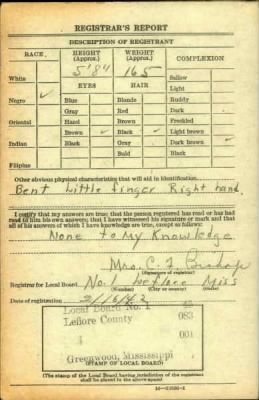 REGISTRAR'S REPORT
DESCRIPTION OF REGISTRANT
RACE HEIGHT (Approx.) WEIGHT (Approx.) COMPLEXION
5'8" 165
White Sallow
EYES HAIR Light
Negro ✓ Blue Blonde Ruddy
Gray Red Dark
Oriental Hazel Brown Freckled
Brown ✓ Black ✓ Light brown
Indian Black Gray Dark brown ✓
Bald Black
Filipino
Other obvious physical characteristics that will aid in identification.
Bent Little finger Right hand.
I certify that my answers are true; that the person registered has read or has had
read to him his own answers; that I have witnessed his signature or mark and that
all of his answers of which I have knowledge are true, except as follows:
None to My Knowledge
Mrs. C. F. Bishop
(Signature of registrar)
Registrar for Local Board No. 1 Leflore Miss
(Number) (City or county) (State)
Date of registration 2/16/42
Local Board No. 1 42
Leflore County 083
1 001
Greenwood, Mississippi
(STAMP OF LOCAL BOARD)
(The stamp of the Local Board having jurisdiction of the registrant
shall be placed in the above space.)